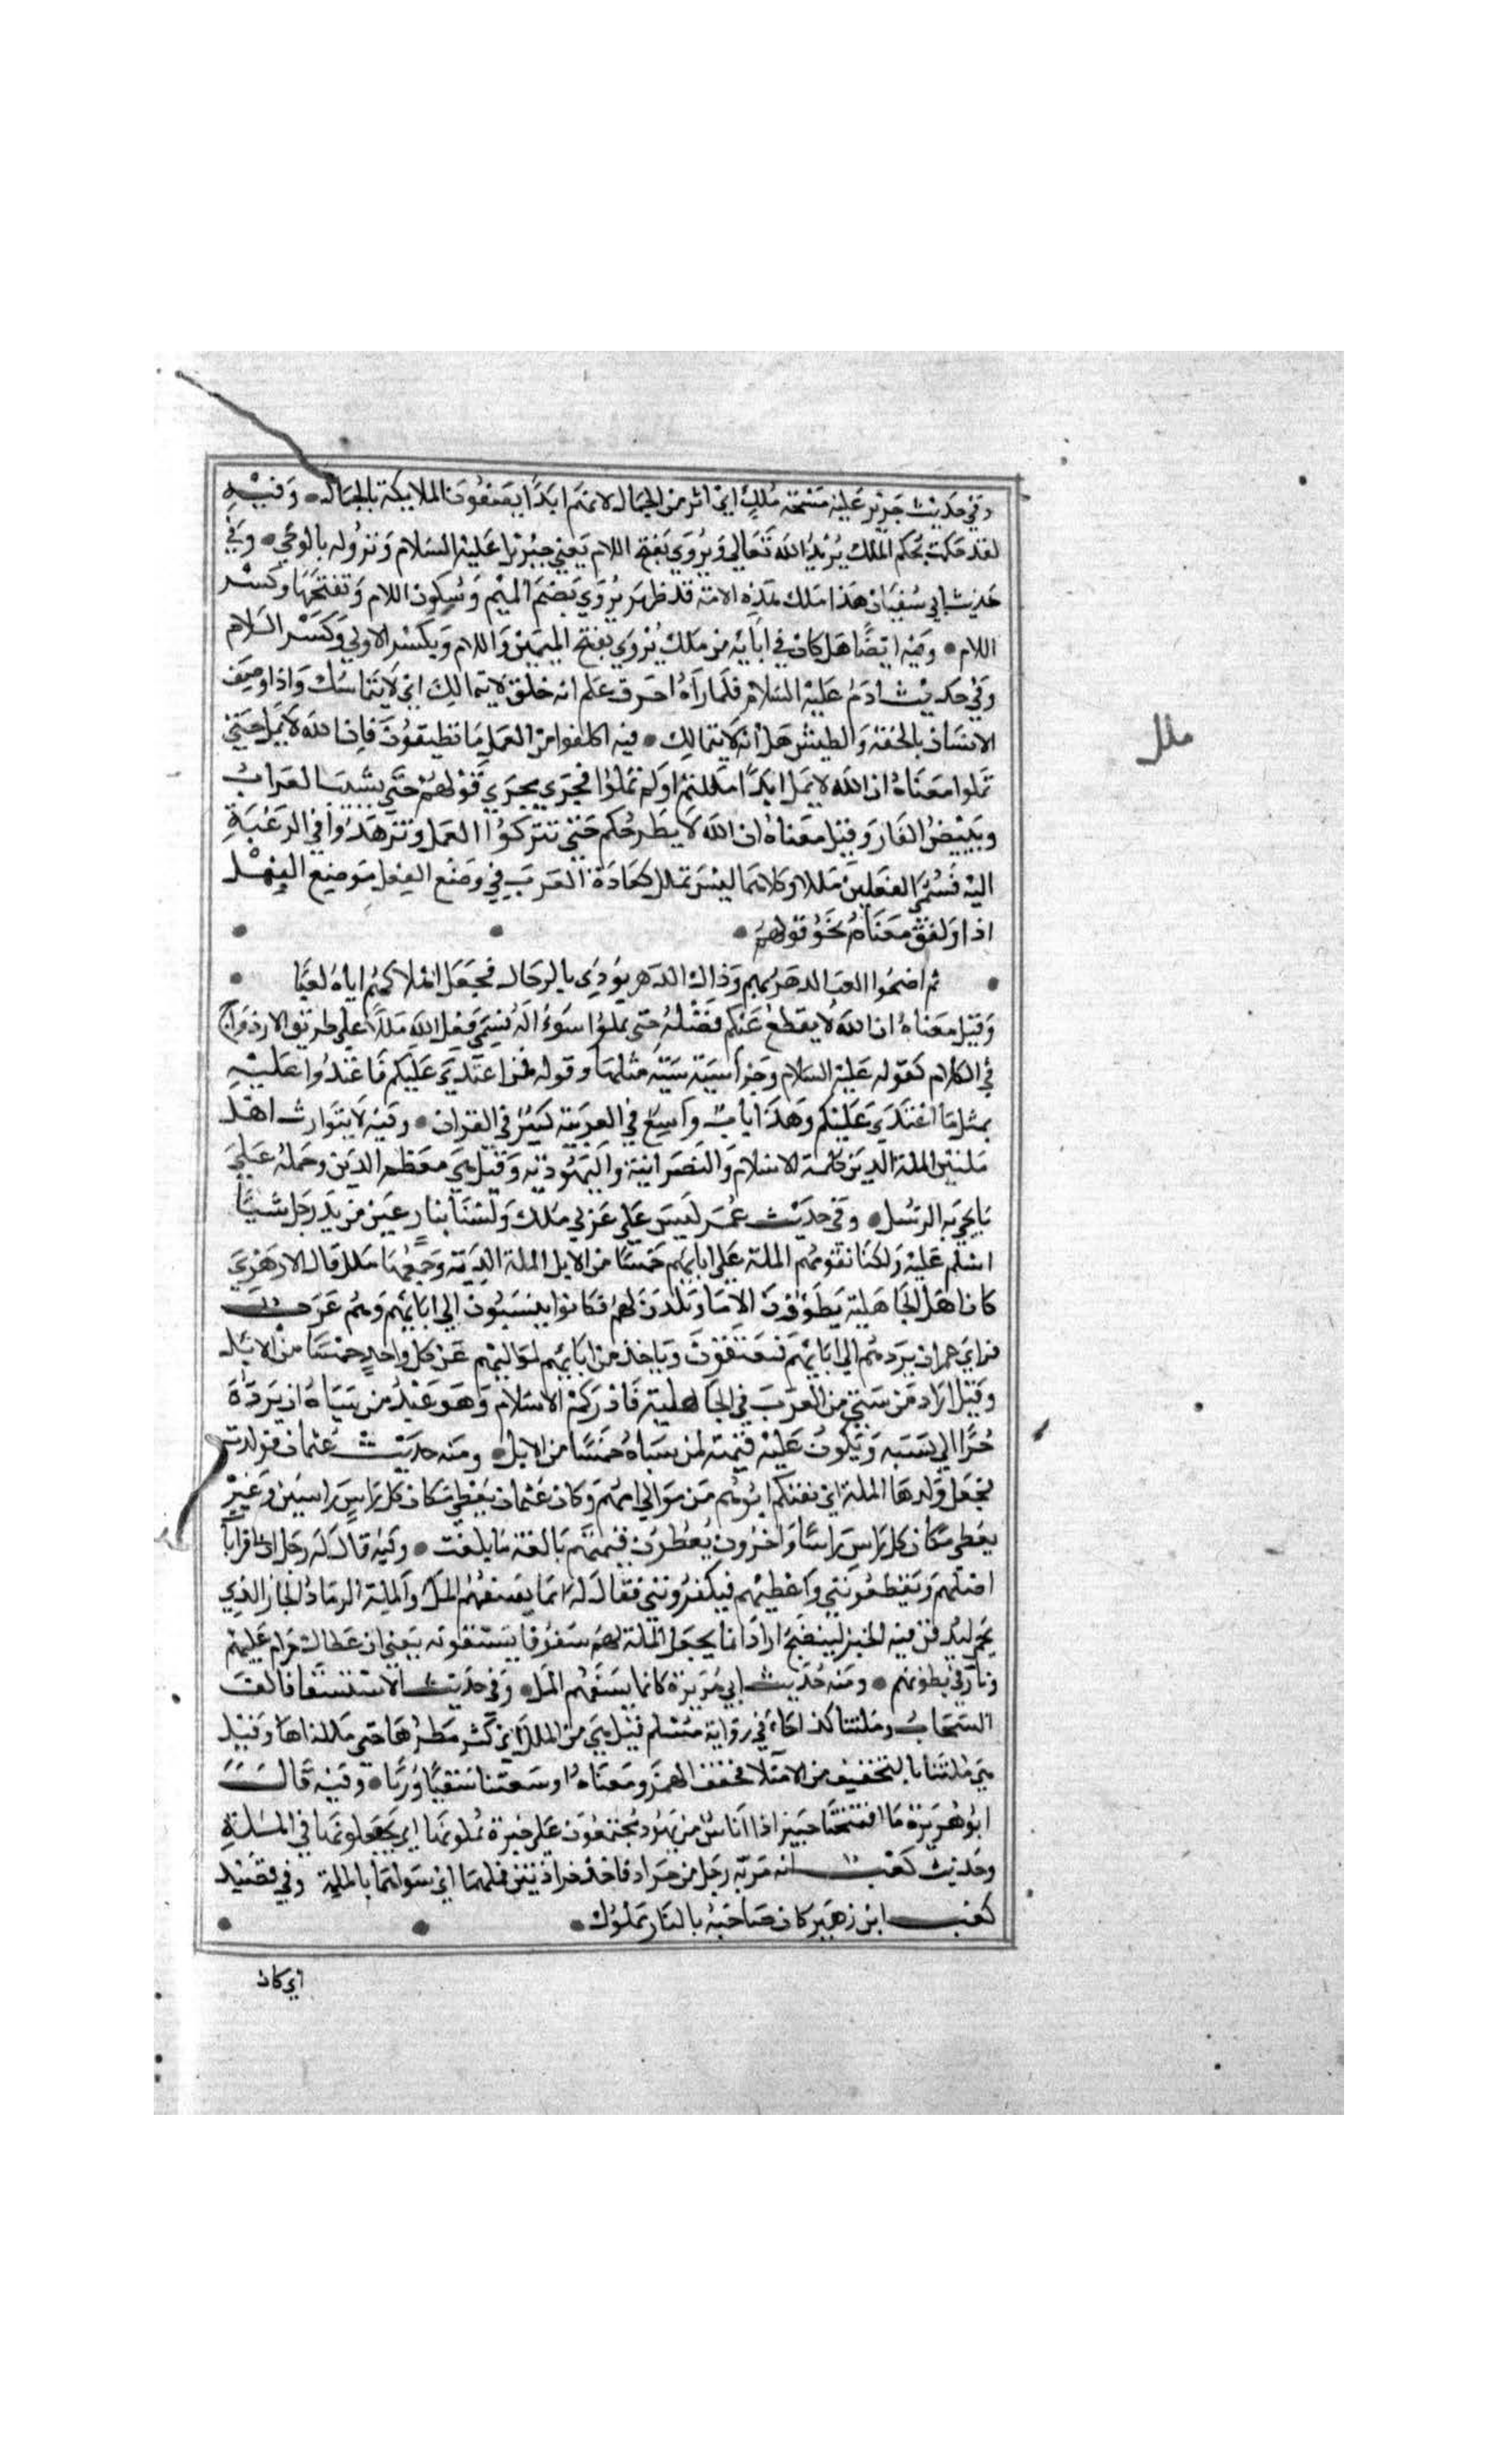 وفي حديث جرير عليه مسحة ملك اي اثر من الجمال لانهم ابدا يصفون الملايكة بالجمال • وفيه
لقد حكمت بحكم الملك يريد الله تعالى ويروي بفتح اللام يعني جبريل عليه السلام ونزوله بالوحي • وفي
حديث ابي سفيان هذا ملك هذه الامة قد ظهر يروي بضم الميم وسكون اللام وتفتحها وكسر
اللام • وفيه ايضا هل كان في ابايه من ملك يروي بفتح الميمين واللام وبكسر الاولي وكسر اللام
وفي حديث ادم عليه السلام فلما رآه اجوف علم انه خلق لا يتمالك اي لا يتماسك واذا وصف
الانسان بالخفة والطيش قيل انه لا يتمالك • فيه اكلفوا من العمل ما تطيقون فان الله لا يمل حتي
تملوا معناه ان الله لا يمل ابدا مللتم او لم تملوا فجري مجري قولهم حتي يشيب الغراب
ويبيض الفار وقيل معناه ان الله لا يطرحكم حتي تتركوا العمل وتزهدوا في الرغبة
اليه فسمي الفعلين مللا وكلاهما ليس بملل كعادة العرب في وضع الفعل موضع الفعل
اذا وافق معناه نحو قولهم •
• ثم اضحوا لعب الدهر بهم وذاك الدهر يودي بالرجال فجعل اهلاكهم اياه لعبا •
وقيل معناه ان الله لا يقطع عنكم فضله حتى تملوا سؤاله فسمي فعل الله مللا علي طريق الازدواج
في الكلام كقوله عليه السلام وجزا سيية سيية مثلها وقوله فمن اعتدي عليكم فاعتدوا عليه
بمثل ما اعتدي عليكم وهذا باب واسع في العربية كثير في القران • وفيه لا يتوارث اهل
ملتين الملة الدين كملة الاسلام والنصرانية واليهودية وقيل هي معظم الدين وجملة
ما يجي به الرسل • وفي حديث عمر ليس علي عربي ملك ولسنا بنازعين من يد رجل شييا
اسلم عليه ولكنا نقومهم الملة علي ابايهم خمسا من الابل الملة الدية وجمعها ملل قال الازهري
كان اهل الجاهلية يطؤون الاما ويلدن لهم فكانوا ينسبون الي ابايهم وهم عرب
فراي عمر ان يردهم الي ابايهم فيعتقون وياخذ من ابايهم لمواليهم عن كل واحد خمسا من الابل
وقيل اراد من سبي من العرب في الجاهلية فادركه الاسلام وهو عبد من سباه ان يرده
حرا الي نسبه ويكون عليه قيمته لمن سباه خمسا من الابل • ومنه حديث عثمان فولدت
فجعل ولدها الملة اي يفتكهم ابوهم من موالي امهم وكان عثمان يعطي مكان كل راس راسين وغيره
يعطي مكان كل راس راسا واخرون يعطون قيمتهم بالغة ما بلغت • وفيه قال له رجل ان لي قرابا
اصلهم ويقطعونني واعطيهم فيكفرونني فقال له انما يسفهم المل والملة الرماد الحار الذي
يحمي ليدفن فيه الخبز لينضج اراد انما يجعل الملة لهم سفوفا يستفونه يعني ان عطاك حرام عليهم
ونار في بطونهم • ومنه حديث ابي هريرة كانما يسفهم المل • وفي حديث الاستسقا فالف
السحاب وملتنا كذا جاء في رواية مسلم قيل هي من الملل اي كثر مطرها حتى مللناها وقيل
هي ملتنا بالتخفيف من الامتلا فخفف الهمز ومعناه اوسعتنا سقيا وريا • وفيه قال
ابو هريرة ما افتتحنا خيبر اذا اناس من يهود مجتمعون علي خبزة يملونها اي يجعلونها في الملة
وحديث كعب انه مر به رجل من جراد فاخذ جرادتين فملهما اي شواهما بالملة وفي قصيد
كعب ابن زهير كان ضاحيه بالنار مملول •
اي كان
ملل